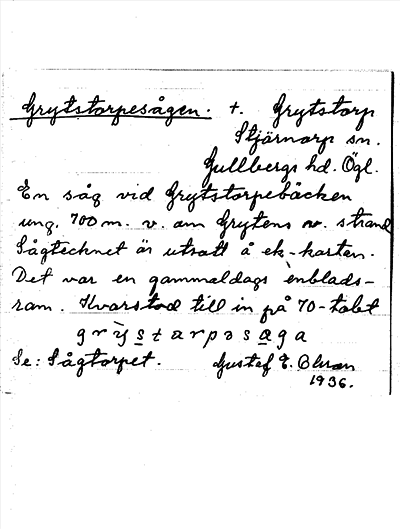 Grytstorpesågen. t. Grytstorp
Stjärnorp sn.
Gullbergs hd. Ögl.
En såg vid Grytstorpebäcken
ung. 700 m. v. om Grytens nv. strand
Sågtecknet är utsatt å ek-kartan.
Det var en gammaldags enblads-
ram. Kvarstod till in på 70-talet
Se: Sågtorpet. Gustaf E. Olsson
1936.